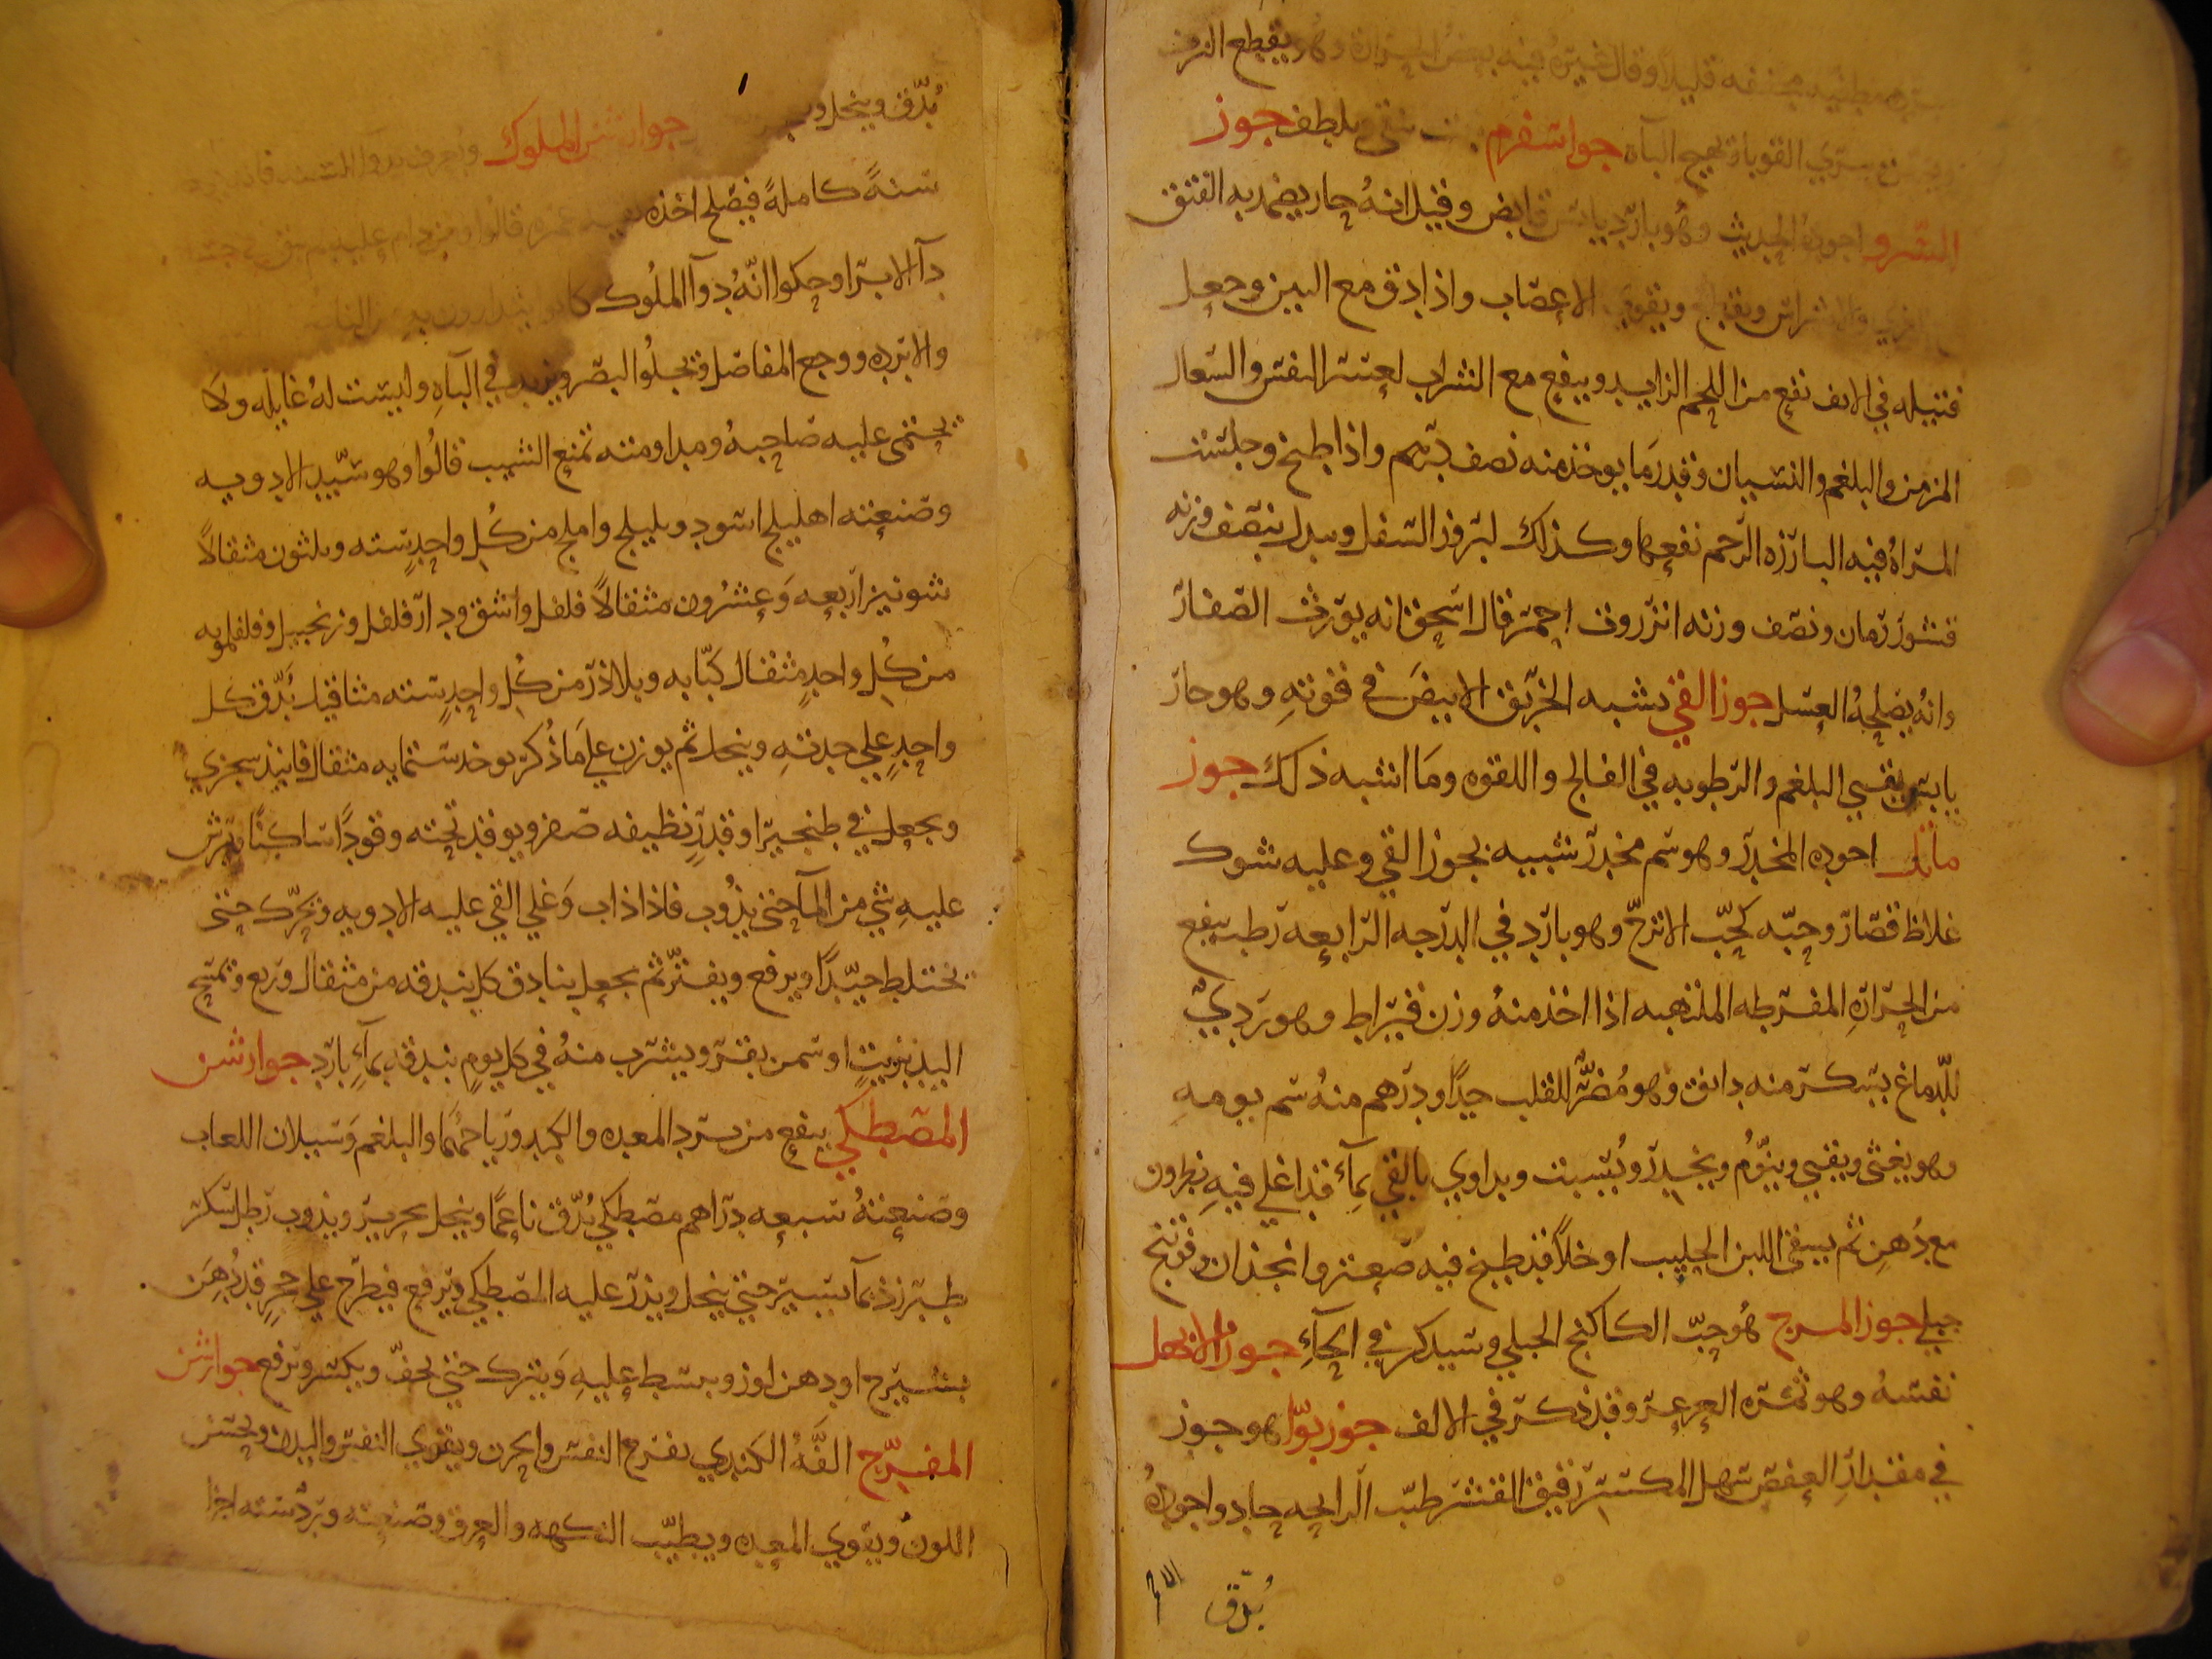 قليلا وقال غيره فيه بعض الحرارة وهو يقطع النزف
القوبا ويهيج الباه جواشفرم يلطف جوز
السرو اجوده الحديث وهو بارد يابس قابض وقيل انه حار يضمد به الفتق
ويقوي الاعصاب واذا دق مع التين وجعل
فتيله في الانف نفع من اللحم الزايد وينفع مع الشراب لعسر النفس والسعال
المزمن والبلغم والنسيان وقدر ما يوخذ منه نصف درهم واذا طبخ وجلست
المراه فيه البارزه الرحم نفعها وكذلك لبروز السفل وبدل بنصف وزنه
قشور رمان ونصف وزنه انزروت احمر قال اسحق انه يورث الصفار
وانه يصلحه العسل جوز القي يشبه الخربق الابيض في قوته وهو حار
يابس يقيي البلغم والرطوبه في الفالج واللقوه وما اشبه ذلك جوز
ماثل اجوده المخدر وهو سم مخدر شبيه بجوز القي وعليه شوك
غلاظ قصار وحبه كحب الاترج وهو بارد في الدرجه الرابعه رطب ينفع
من الحراره المفرطه الملتهبه اذا اخذ منه وزن قيراط وهو ردي
للدماغ يسكر منه دانق وهو مضر للقلب جدا ودرهم منه سم يومه
وهو يغثي ويقيي وينوم ويخدر ويسبت ويداوي بالقي بماء قد اغلي فيه نطرون
مع دهن ثم يسقى اللبن الحليب او خلا قد طبخ فيه صعتر وانجذان وفوتنج
جبلي جوز المرج هو حب الكاكنج الجبلي وسيذكر في الحاء جوز الابهل
نفسه وهو ثمره العرعر وقد ذكر في الالف جوز بوا هو جوز
في مقدار العفص سهل المكسر رقيق القشر طيب الرايحه حاد واجوده
يدق
يدق وينخل جوارشن الملوك
سنة كاملة فيصلح اخذه
دآ الابترا وحكوا انه دوآ الملوك
والابرده ووجع المفاصل ويجلوا البصر ويزيد في الباه وليست له غايله ولا
يحتمى عليه صاحبه ومداومته تمنع الشيب قالوا وهو سيد الادويه
وصنعته اهليلج اسود وبليلج واملج من كل واحد سته وثلثون مثقالا
شونيز اربعه وعشرون مثقالا فلفل واشق ودار فلفل وزنجبيل وفلفلمويه
من كل واحد مثقال كبابه وبلاذر من كل واحد سته مثاقيل يدق كل
واحد علي حدته وينخل ثم يوزن علي ما ذكر يوخذ ستمايه مثقال فانيذ سجزي
ويجعل في طنجير او قدر نظيفه صفر ويوقد تحته وقودا ساكنا ويرش
عليه شي من المآ حتى يذوب فاذا ذاب وغلي القي عليه الادويه ويحرك حتى
يختلط جيدا ويرفع ويفتر ثم يجعل بنادق كل بندقه من مثقال وربع وتمسح
اليد بزيت او سمن بقر ويشرب منه في كل يوم بندقه بمآء بارد جوارشن
المصطكي ينفع من برد المعده والكبد ورياحهما والبلغم وسيلان اللعاب
وصنعته سبعه دراهم مصطكي يدق ناعما وينخل بحرير ويذوب رطل سكر
طبرزذ بمآ يسير حتى ينحل ويذر عليه المصطكي ويرفع فيطرح علي حجر قد دهن
بشيرج او دهن لوز ويبسط عليه ويترك حتى يجف ويكسر ويرفع جوارشن
المفرح الفه الكندي يفرح النفس والحزن ويقوي النفس والبدن ويحسن
اللون ويقوي المعده ويطيب النكهه والعرق وصنعته ورد سته اجزا